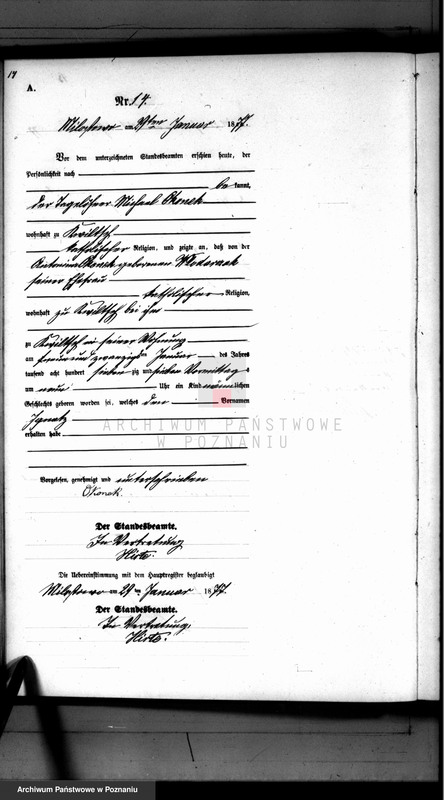 14
A.
Nr. 14.
am 29ten Januar 1877.
Vor dem unterzeichneten Standesbeamten erschien heute, der
Persönlichkeit nach
be kannt,
der Tagelöhner Michael
wohnhaft zu Kwiltsch
katholischer Religion, und zeigte an, daß von der
Antonina geborenen Wlodarczak
seiner Ehefrau
katholischer Religion,
wohnhaft zu Kwiltsch bei ihm
zu Kwiltsch in seiner Wohnung
am und zwanzigsten Januar des Jahres
tausend acht hundert sieben zig und sieben Vormittags
um neun Uhr ein Kind männlichen
Geschlechts geboren worden sei, welches den Vornamen
Ignatz
erhalten habe
ARCHIWUM PAŃSTWOWE
W POZNANIU
Vorgelesen, genehmigt und unterschrieben
Der Standesbeamte.
In Vertretung
Die Uebereinstimmung mit dem Hauptregister beglaubigt
am 29ten Januar 1877.
Der Standesbeamte.
In Vertretung,
Archiwum Państwowe w Poznaniu